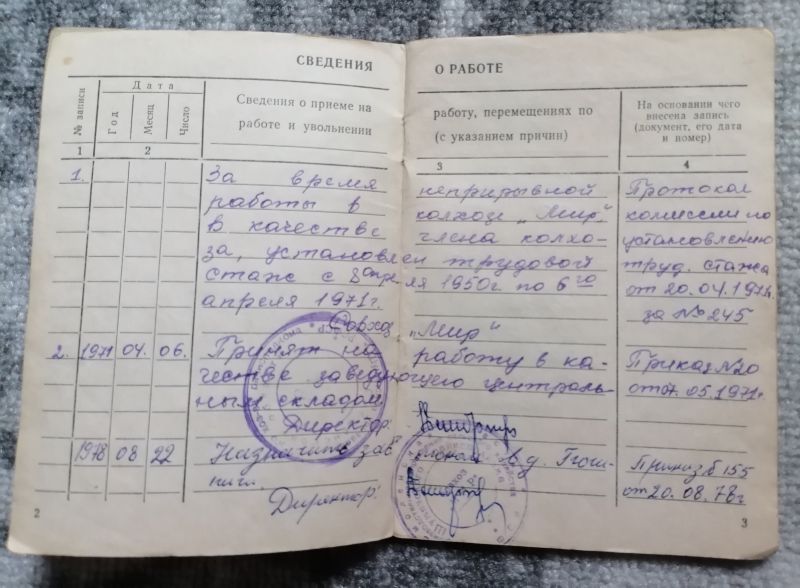 СВЕДЕНИЯ О РАБОТЕ
№ записи
Дата
Год
Месяц
Число
Сведения о приеме на
работе и увольнении
работу, перемещениях по
(с указанием причин)
На основании чего
внесена запись
(документ, его дата
и номер)
1 2 3 4
1. За время неприрывной
работы в колхозе „Мир",
в качестве члена колхо-
за, установлен трудовой
стаж с 8 апреля 1950г. по 6го
апреля 1971г.
Протокол
комиссии по
установлению
труд. стажа
от 20.04.1971г.
за № 245
Совхоз „Мир"
2. 1971 04. 06. Принят на работу в ка-
честве заведующего централь-
ным складом
Директор:
Приказ №20
от 07.05.1971г.
1978 08 22 Назначить зав
Директор:
Приказ 155
от 20.08.78г
2
3